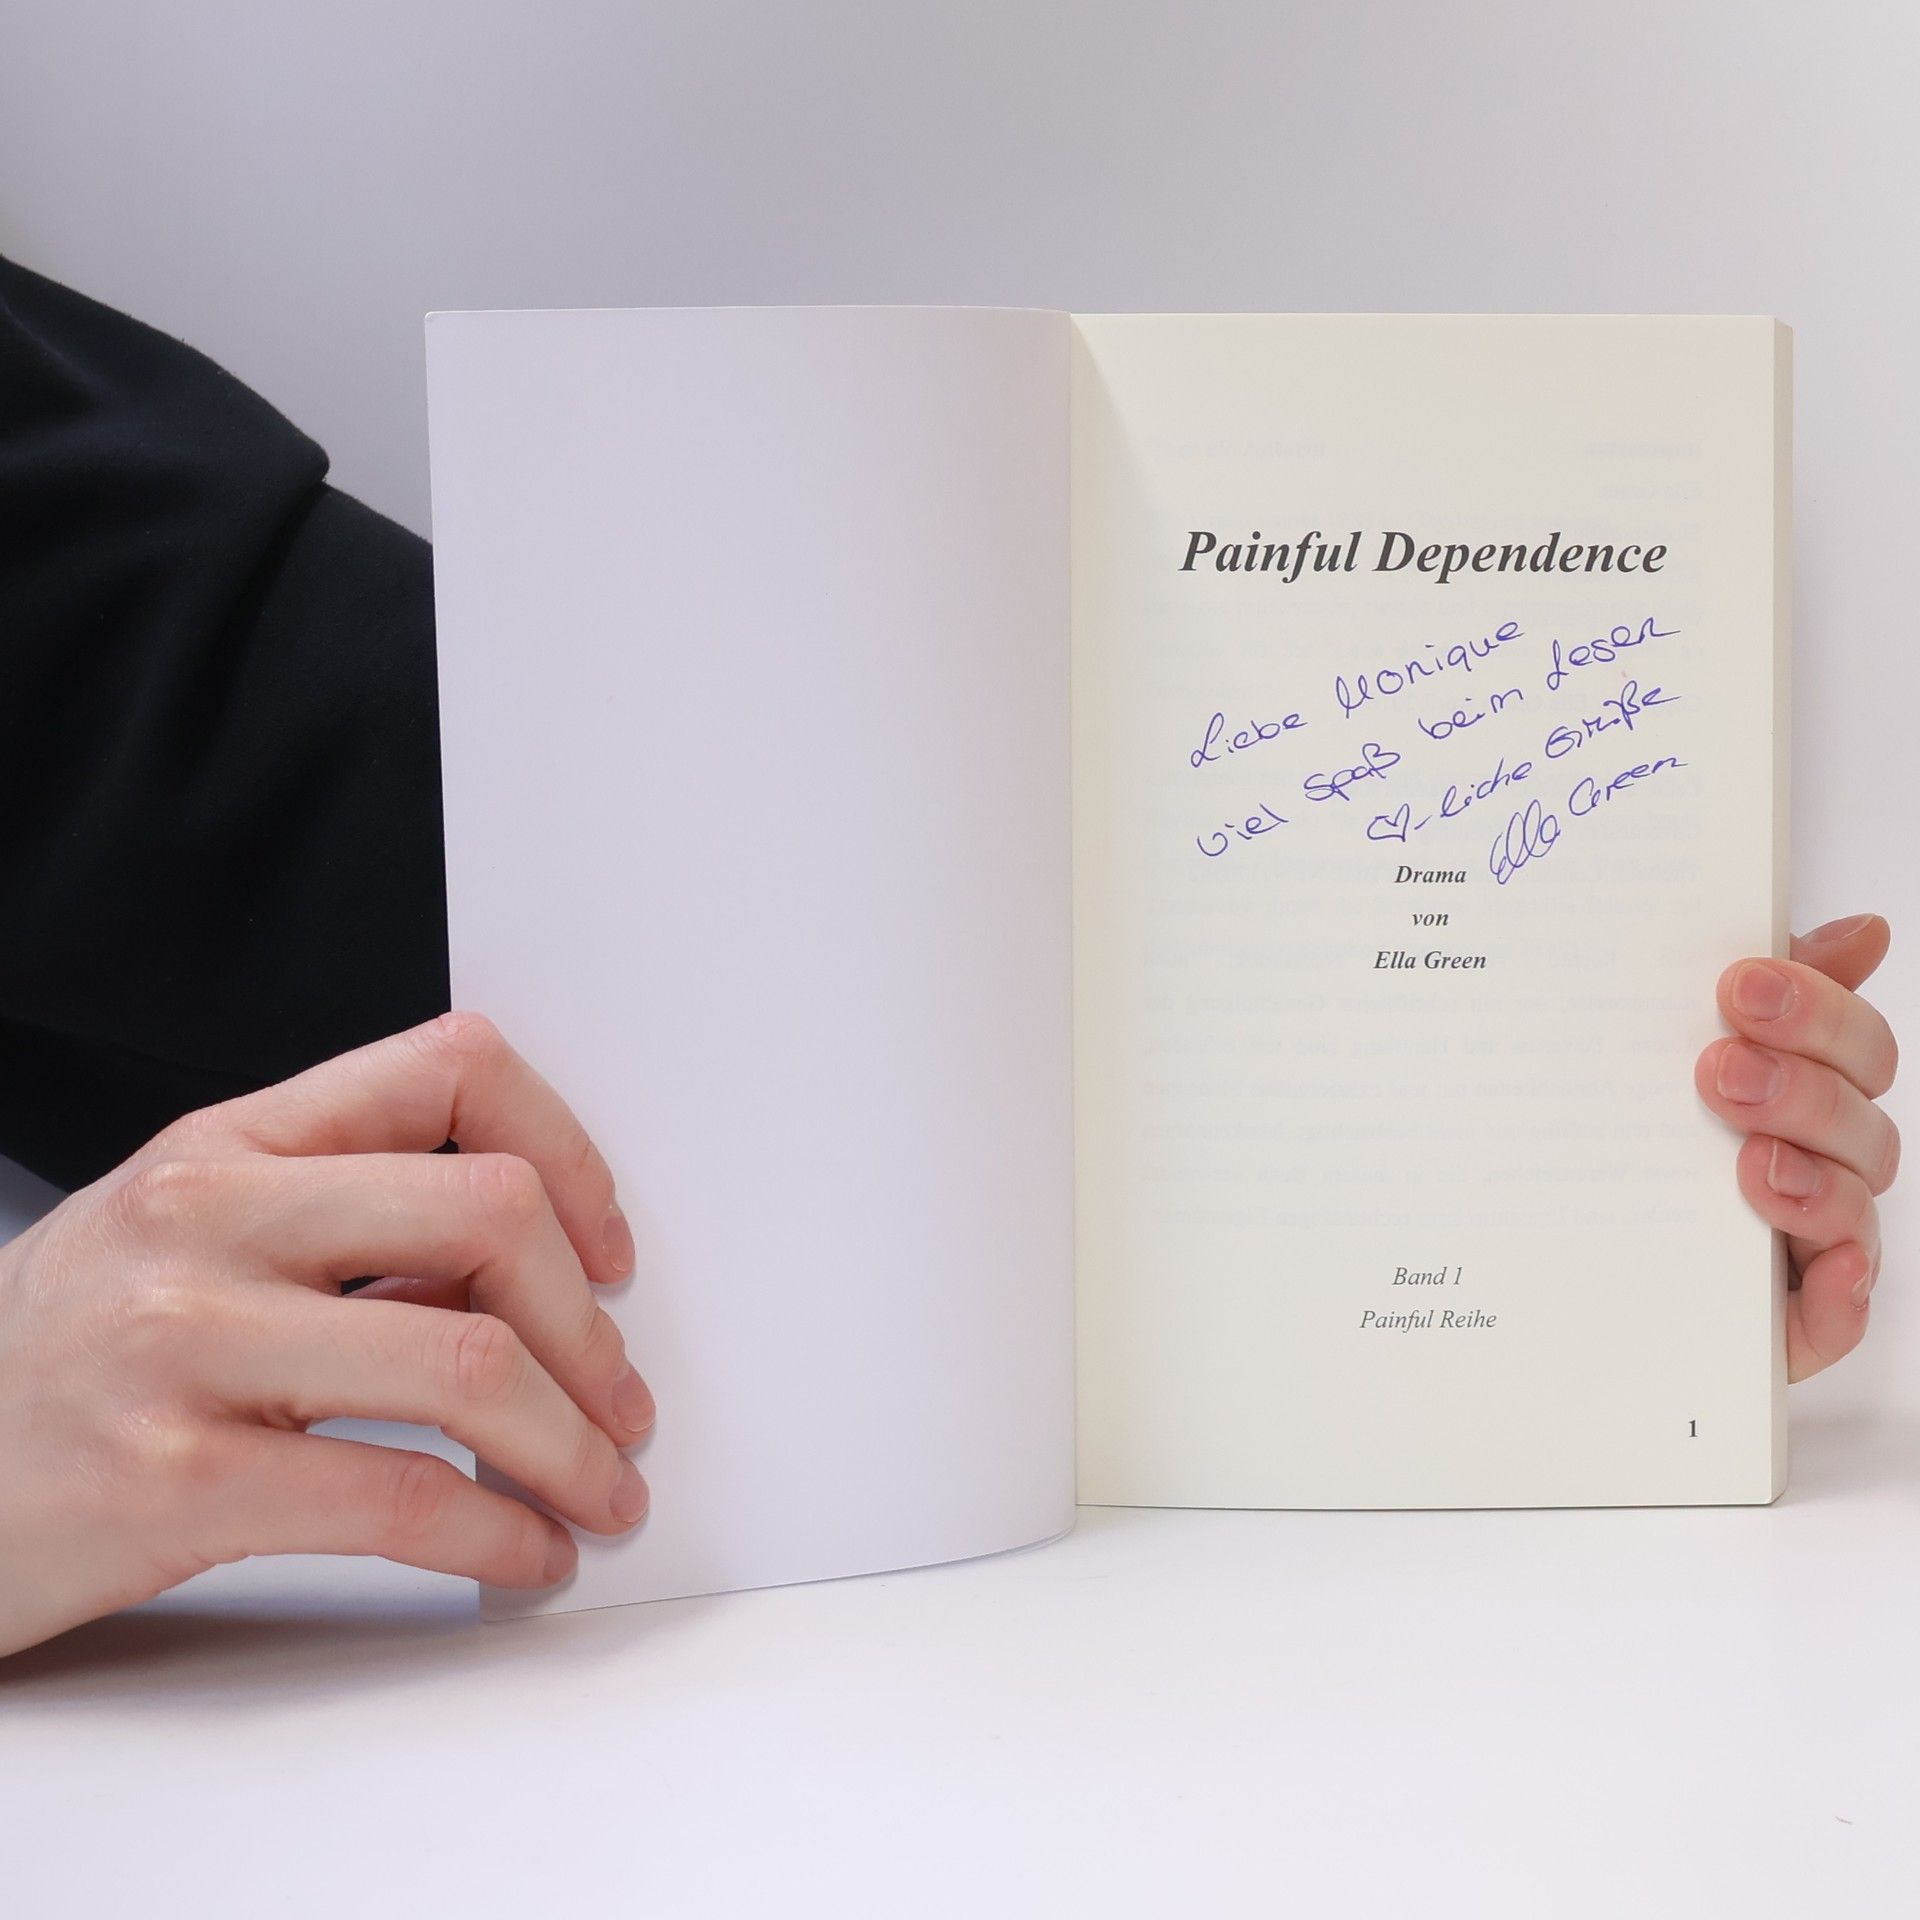 Painful Dependence
Liebe Monique
viel Spaß beim Lesen
♡-liche Grüße
Ella Green
Drama
von
Ella Green
Band 1
Painful Reihe
1